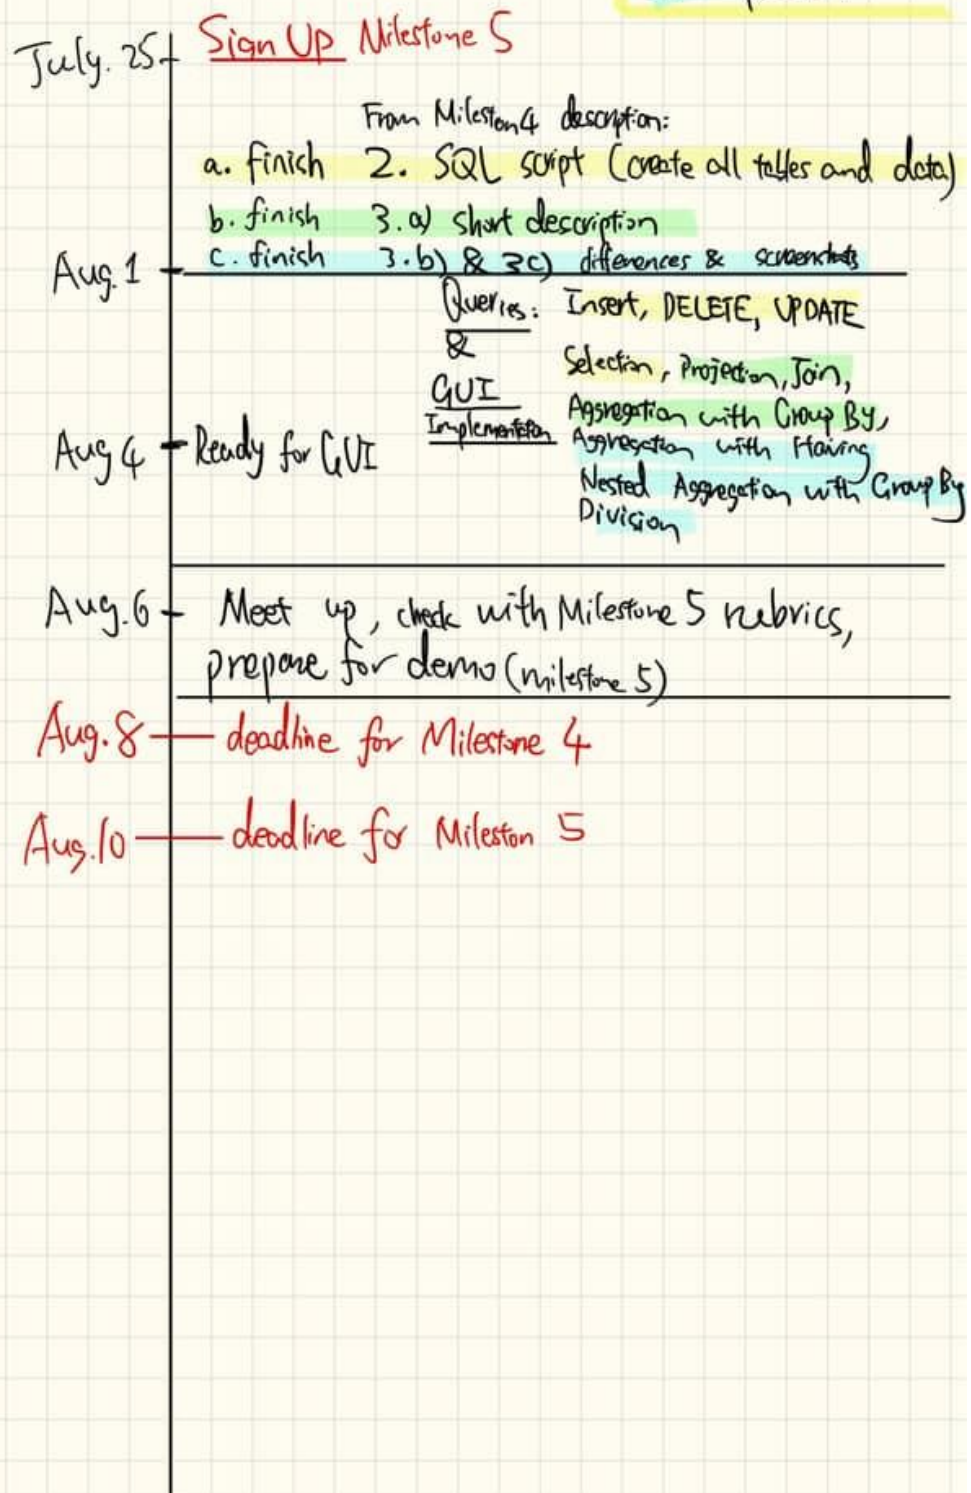 July. 25 Sign Up Milestone 5
From Mileston4 description:
a. finish 2. SQL script (create all tables and data)
b. finish 3.a) short description
c. finish 3.b) & 3c) differences & screenshots
Aug. 1
Queries: Insert, DELETE, UPDATE
& Selection, Projection, Join,
GUI Aggregation with Group By,
Implementation Aggregation with Having
Aug 4 Ready for GUI
Nested Aggregation with Group By
Division
Aug. 6 Meet up, check with Milestone 5 rubrics,
prepare for demo (milestone 5)
Aug. 8 deadline for Milestone 4
Aug. 10 deadline for Mileston 5